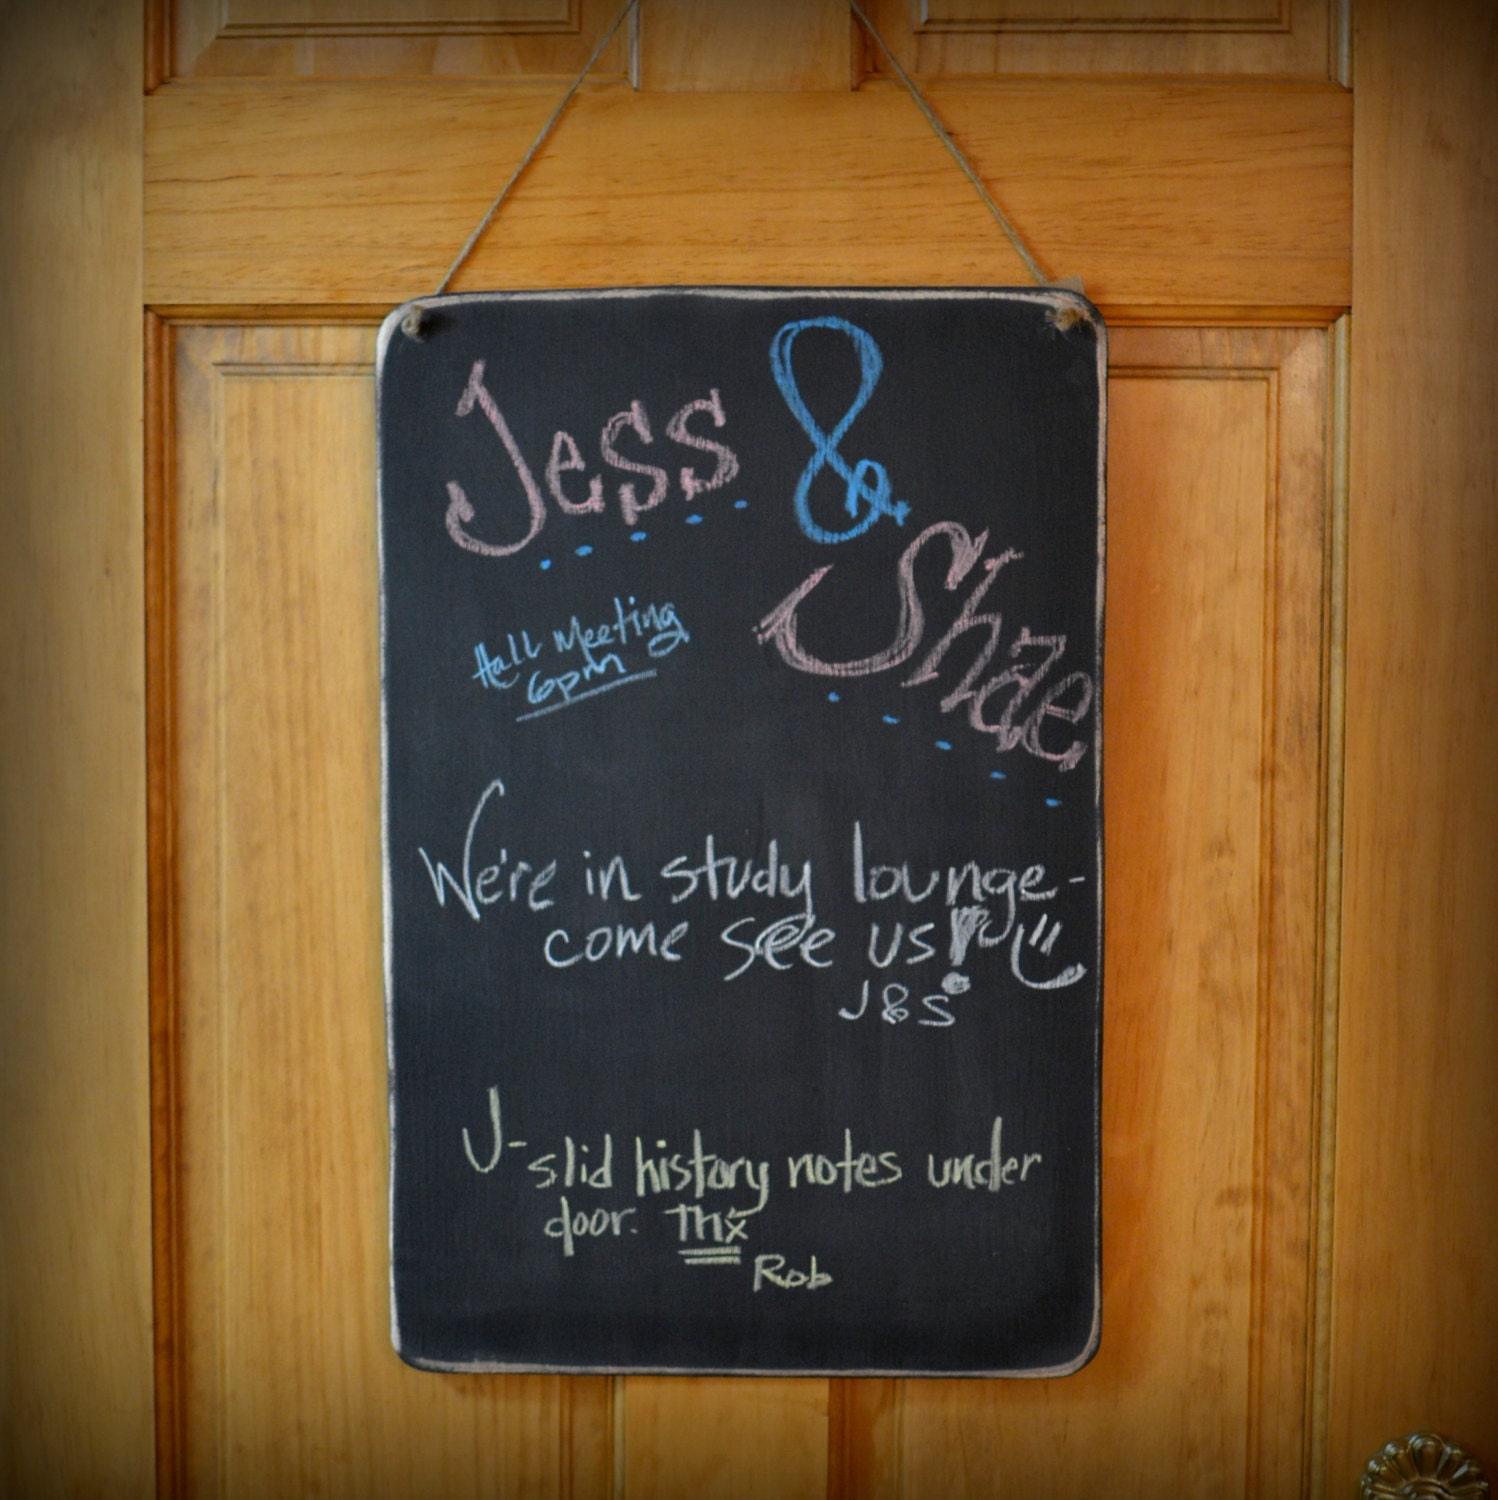 Jess &
Shae
Hall Meeting
6pm
We're in study lounge-
come see us!
J&S
J- slid history notes under
door. Thx
Rob